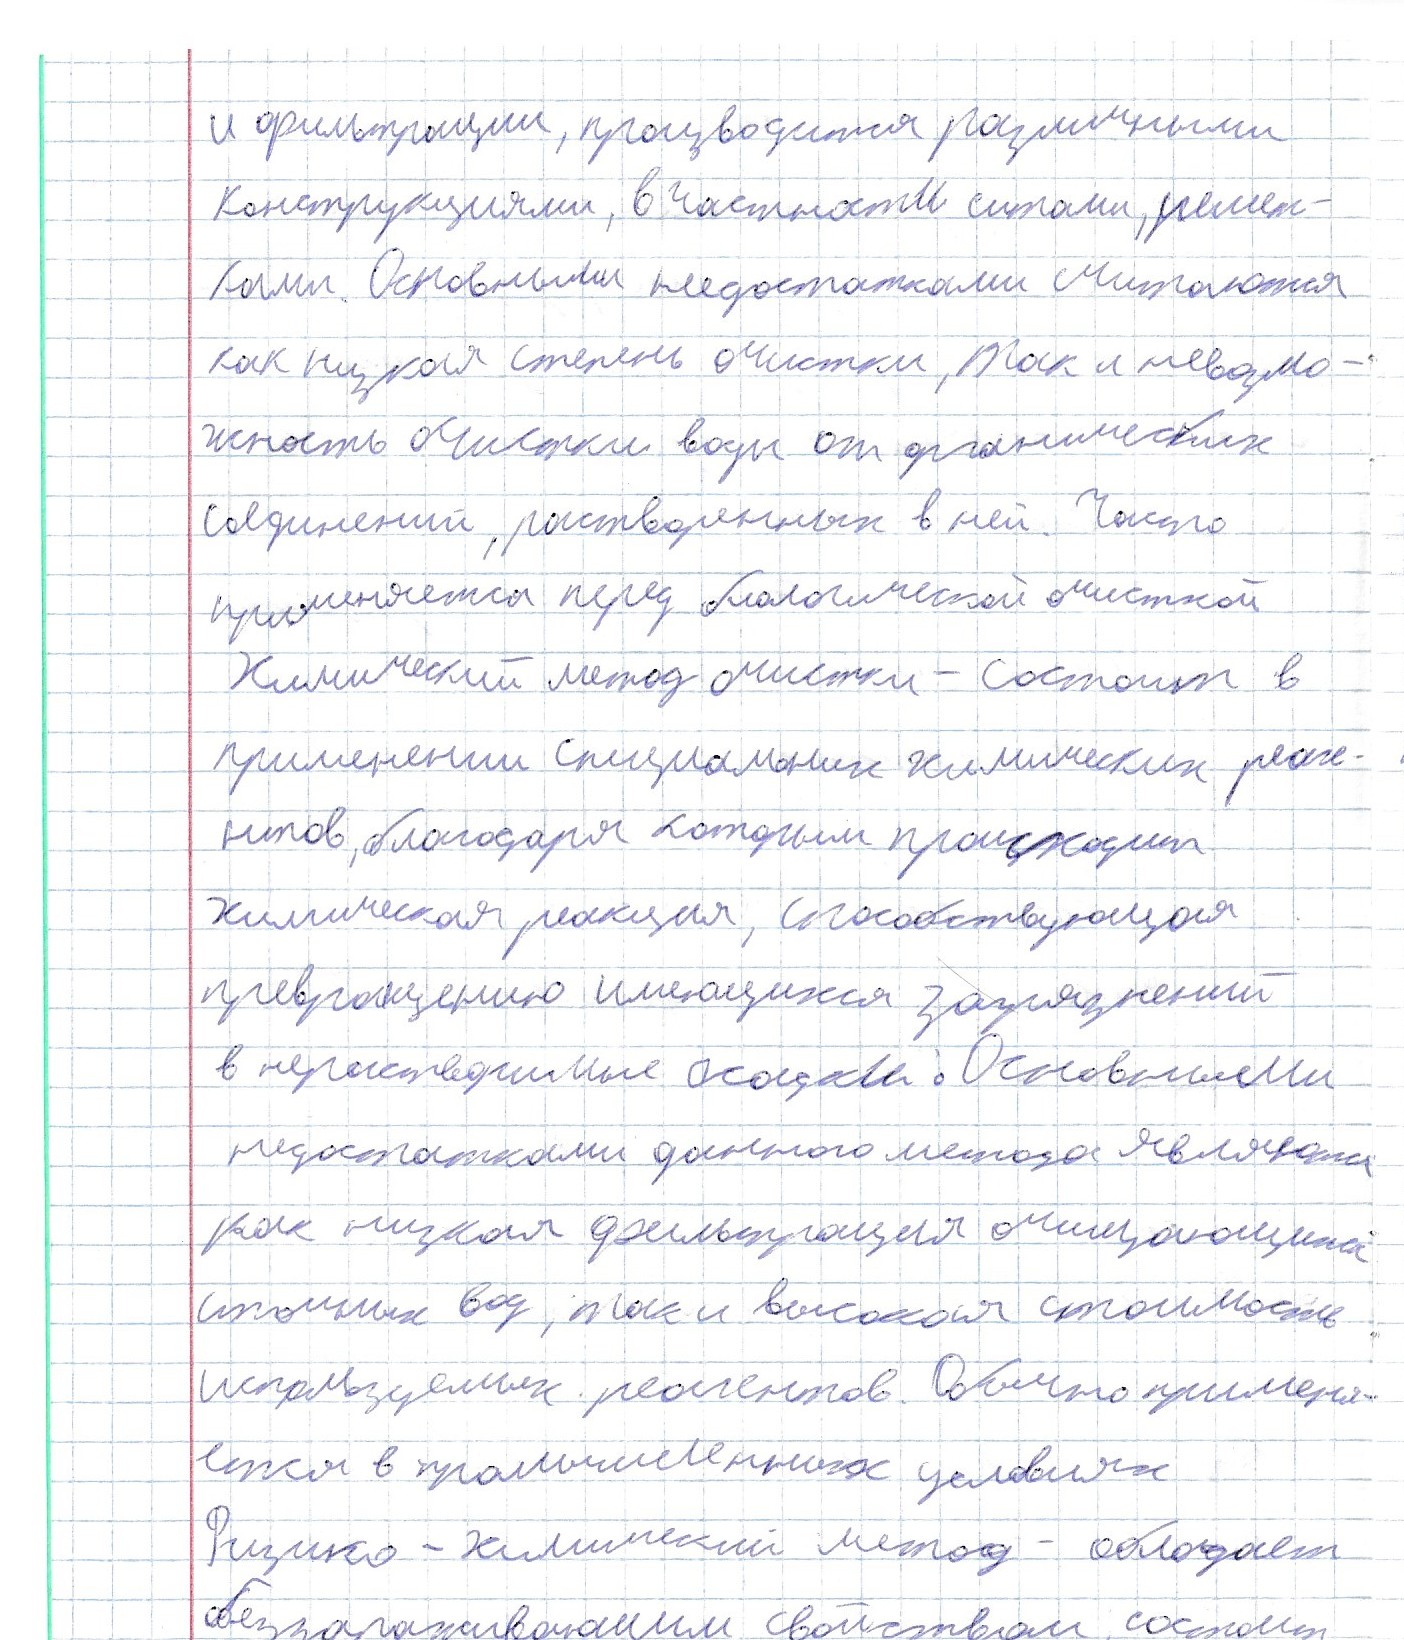 и фильтрации, производится различными
конструкциями, в частности ситами, решет-
ками. Основными недостатками считаются
как низкая степень очистки, так и невозмо-
жность очистки воды от органических
соединений, растворенных в ней. Часто
применяется перед биологической очисткой
Химический метод очистки - состоит в
применении специальных химических реаге-
нтов, благодаря которым происходит
химическая реакция, способствующая
превращению имеющихся загрязнений
в нерастворимые осадки. Основными
недостатками данного метода являются
как низкая фильтрация очищающихся
сточных вод, так и высокая стоимость
используемых реагентов. Обычно применя-
ется в промышленных условиях
Физико - химический метод - обладает
обеззараживающим свойством, состоит